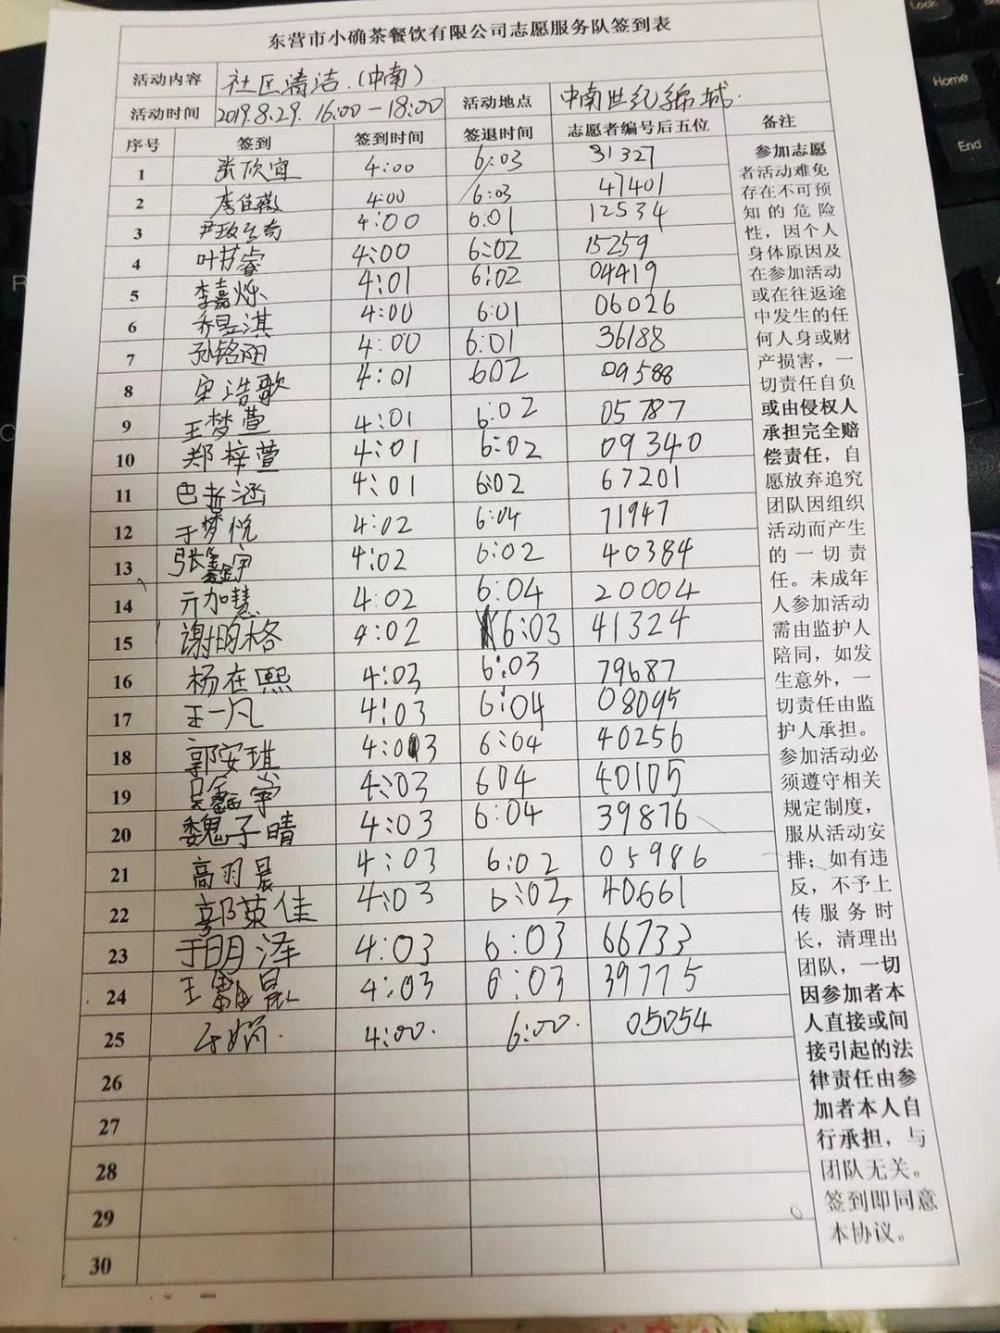 东营市小确茶餐饮有限公司志愿服务队签到表
活动内容 社区清洁(中南)
活动时间 2019.8.29. 16:00-18:00 活动地点 中南世纪锦城.
序号 签到 签到时间 签退时间 志愿者编号后五位 备注
1 张欣宜 4:00 6:03 31327
2 李佳薇 4:00 6:03 47401
3 4:00 6:01 12534
4 叶芮睿 4:00 6:02 15259
5 李嘉烁 4:01 6:02 04419
6 乔昱淇 4:00 6:01 06026
7 孙铭阳 4:00 6:01 36188
8 宋浩歌 4:01 602 09588
9 王梦萱 4:01 6:02 05787
10 郑梓萱 4:01 6:02 09340
11 4:01 6:02 67201
12 于梦悦 4:02 6:04 71947
13 张鑫宇 4:02 6:02 40384
14 亓加慧 4:02 6:04 20004
15 谢明格 4:02 6:03 41324
16 杨在熙 4:03 6:03 79687
17 王一凡 4:03 6:04 08095
18 郭安琪 4:03 6:04 40256
19 4:03 604 40105
20 魏子晴 4:03 6:04 39876
21 高羽晨 4:03 6:02 05986
22 郭英佳 4:03 6:03 40661
23 于明泽 4:03 6:03 66733
24 4:03 6:03 39775
25 4:00. 6:00. 05054
26
27
28
29
30
参加志愿
者活动难免
存在不可预
知的危险
性，因个人
身体原因及
在参加活动
或在往返途
中发生的任
何人身或财
产损害，一
切责任自负
或由侵权人
承担完全赔
偿责任，自
愿放弃追究
团队因组织
活动而产生
的一切责
任。未成年
人参加活动
需由监护人
陪同，如发
生意外，一
切责任由监
护人承担。
参加活动必
须遵守相关
规定制度，
服从活动安
排；如有违
反，不予上
传服务时
长，清理出
团队，一切
因参加者本
人直接或间
接引起的法
律责任由参
加者本人自
行承担，与
团队无关。
签到即同意
本协议。
Home
End
Lock